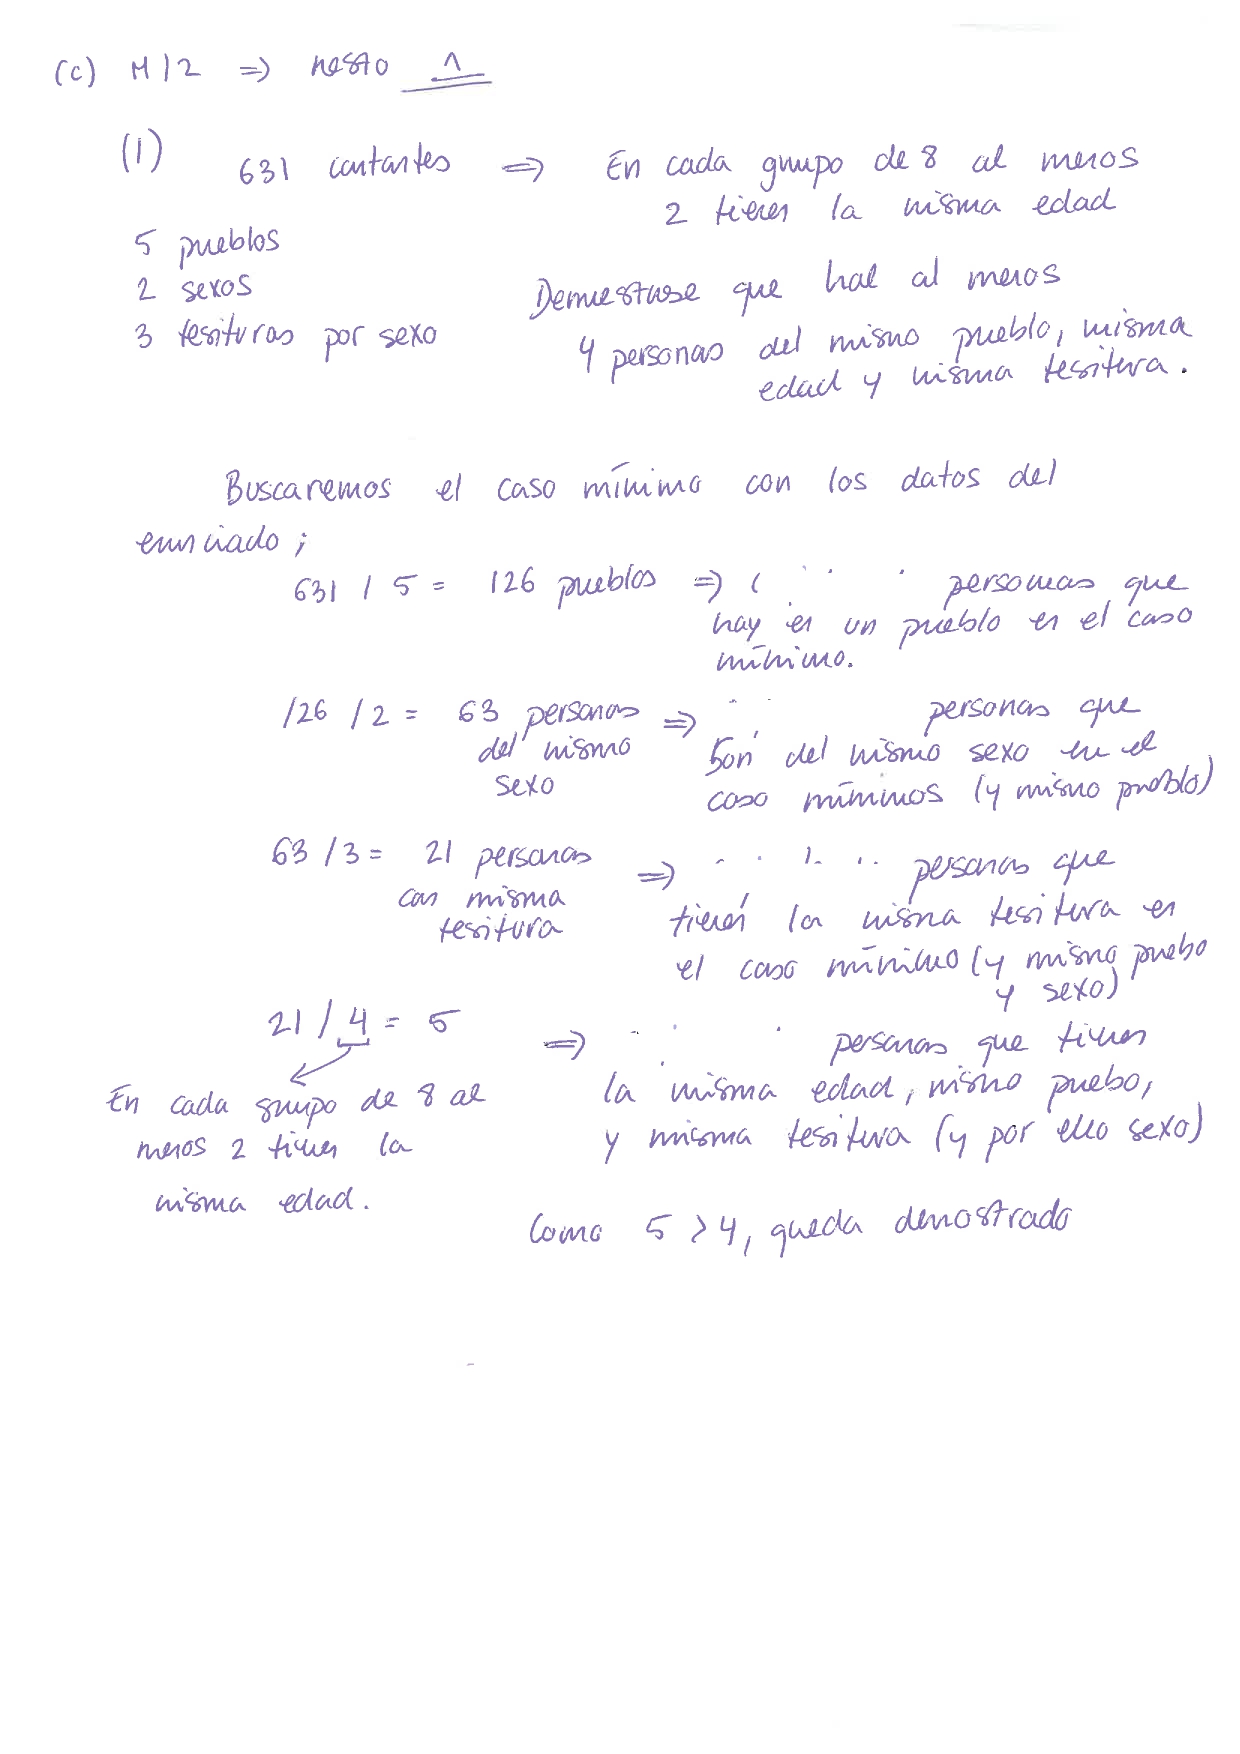 (c) M12 => resto 1
(1) 631 cantantes => En cada grupo de 8 al menos
2 tienen la misma edad
5 pueblos
2 sexos
3 tesituras por sexo
Demuestrase que hal al menos
4 personas del mismo pueblo, misma
edad y misma tesitura.
Buscaremos el caso mínimo con los datos del
enunciado;
631 / 5 = 126 pueblos => personas que
hay en un pueblo en el caso
mínimo.
126 / 2 = 63 personas
del mismo
sexo
=> personas que
son del mismo sexo en el
caso mínimos (y mismo pueblo)
63 / 3 = 21 personas
con misma
tesitura
=> personas que
tienen la misma tesitura en
el caso mínimo (y mismo puebo
y sexo)
21 / 4 = 5
En cada grupo de 8 al
menos 2 tienen la
misma edad.
=> personas que tienen
la misma edad, mismo puebo,
y misma tesitura (y por ello sexo)
Como 5 > 4, queda demostrado